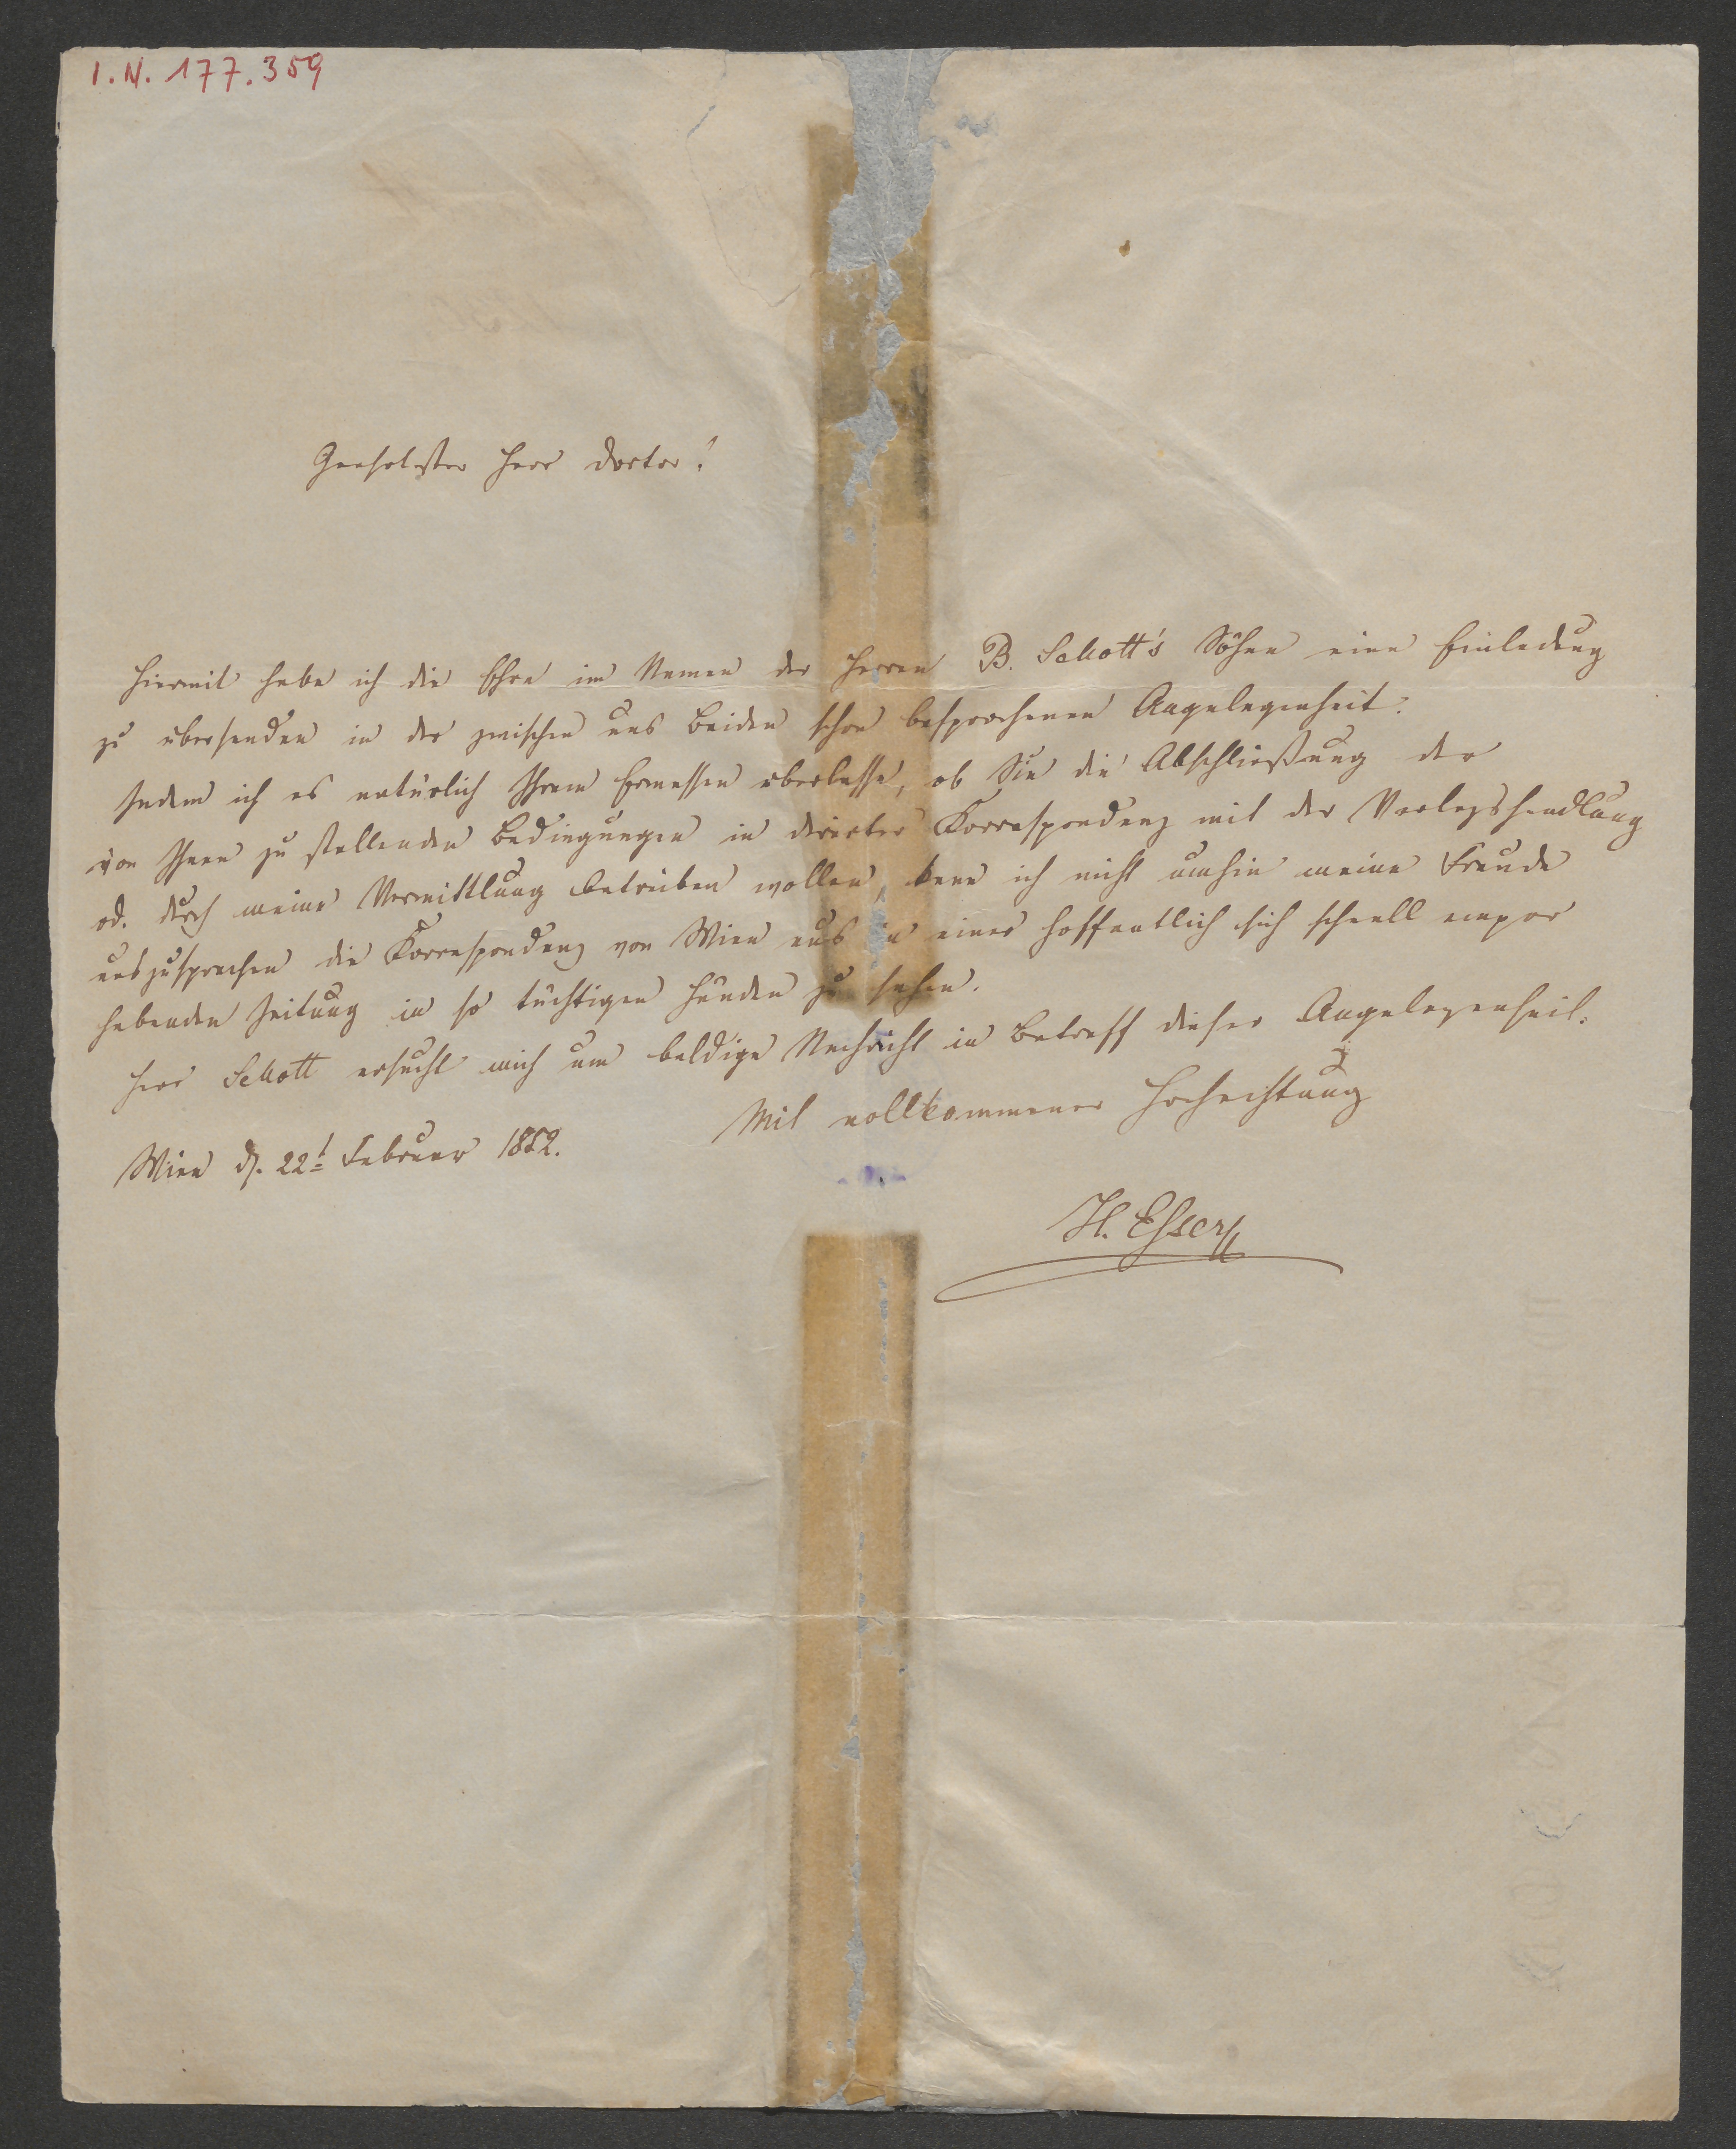 I. N. 177.359
Geehrtester Herr Doctor!
Hiermit habe ich die Ehre im Namen der Herren B. Schott's Söhne eine Einladung
zu übersenden in der zwischen uns Beiden schon besprochenen Angelegenheit.
Indem ich es natürlich Ihrem Ermessen überlasse, ob Sie die Abschließung der
von Ihnen zu stellenden Bedingungen in directer Korrespondenz mit der Verlagshandlung
od. durch meine Vermittlung betreiben wollen, kann ich nicht umhin meine Freude
auszusprechen die Korrespondenz von Wien aus in einer hoffentlich sich schnell empor
hebenden Zeitung in so tüchtigen Händen zu sehen.
Herr Schott ersucht mich um baldige Nachricht in Betreff dieser Angelegenheit.
Mit vollkommener Hochachtung
Wien d. 22t Februar 1852.
H. Esser